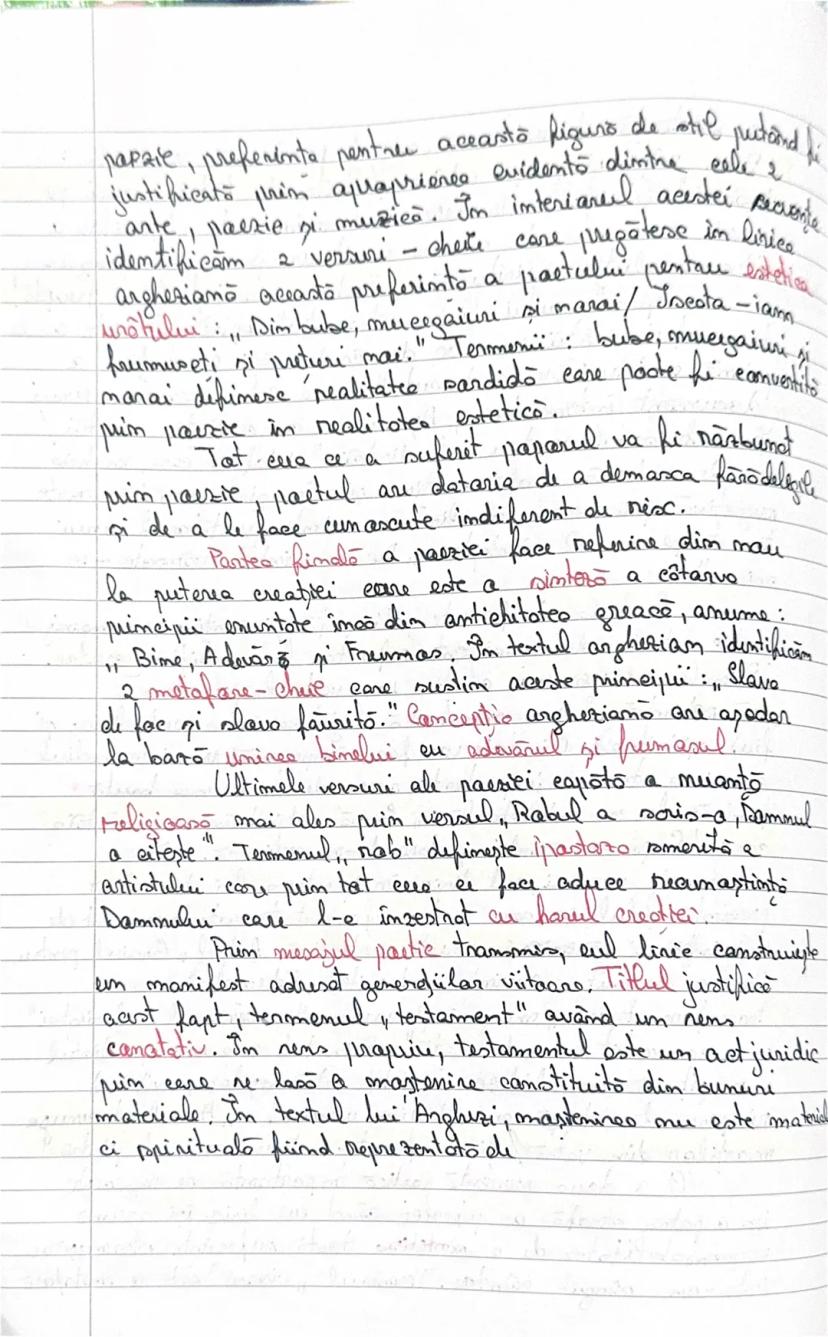 poezie, preferința pentru această figură de stil putând fi
justificată prin apropierea evidentă dintre cele 2
arte, poezie și muzică. În interiorul acestei secvențe
identificăm 2 versuri - cheie care pregătesc în lirica
argheziană această preferință a poetului pentru estetica
urâtului: „Din bube, mucegaiuri și noroi / Iscat-am
frumuseți și prețuri noi." Termenii: bube, mucegaiuri și
noroi definesc realitatea sordidă care poate fi convertită
prin poezie în realitatea estetică.
Tot ceea ce a suferit poporul va fi răzbunat
prin poezie, poetul are datoria de a demasca fărădelegile
și de a le face cunoscute indiferent de risc.
Partea finală a poeziei face referire din nou
la puterea creației care este o sinteză a câtorva
principii enunțate încă din antichitatea greacă, anume:
„ Bine, Adevăr și Frumos. În textul arghezian identificăm
2 metafore-cheie care susțin aceste principii: „Slova
de foc și slova făurită." Concepția argheziană are așadar
la bază unirea binelui cu adevărul și frumosul.
Ultimele versuri ale poeziei capătă o nuanță
religioasă mai ales prin versul „Robul a scris-o, Domnul
o citește". Termenul „rob" definește ipostaza smerită a
artistului care prin tot ceea ce face aduce recunoștință
Domnului care l-a înzestrat cu harul creației.
Prin mesajul poetic transmis, eul liric construiește
un manifest adresat generațiilor viitoare. Titlul justifică
acest fapt, termenul „testament" având un sens
conotativ. În sens propriu, testamentul este un act juridic
prin care se lasă o moștenire constituită din bunuri
materiale. În textul lui Arghezi, moștenirea nu este material
ci spirituală fiind reprezentată de